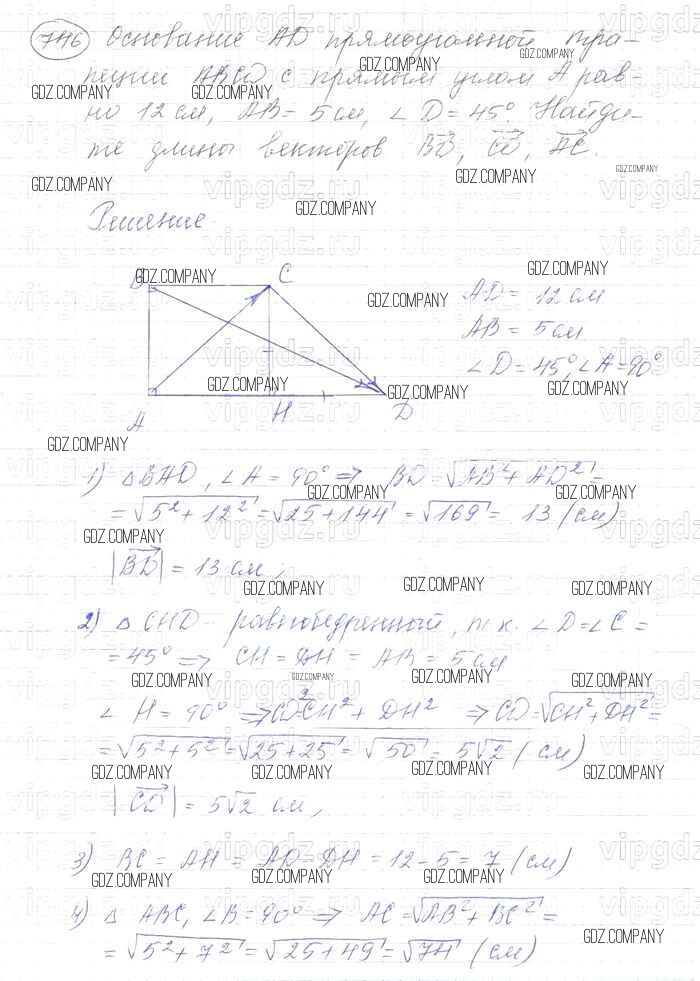 746 Основание AD прямоугольной тра-
пеции ABCD с прямым углом A рав-
но 12 см, AB = 5 см, ∠D = 45°. Найди-
те длины векторов BD, CD, AC.
Решение
B C
AD = 12 см
AB = 5 см
∠D = 45°, ∠A = 90°
A H D
1) △BAD, ∠A = 90° ⇒ BD = √AB² + AD² =
= √5² + 12² = √25 + 144 = √169 = 13 (см)
|BD| = 13 см,
2) △CHD - равнобедренный, т.к. ∠D = ∠C =
= 45° ⇒ CH = DH = AB = 5 см
∠H = 90° ⇒ CD² = CH² + DH² ⇒ CD = √CH² + DH² =
= √5² + 5² = √25 + 25 = √50 = 5√2 (см)
|CD| = 5√2 см,
3) BC = AH = AD - DH = 12 - 5 = 7 (см)
4) △ABC, ∠B = 90° ⇒ AC = √AB² + BC² =
= √5² + 7² = √25 + 49 = √74 (см)
GDZ.COMPANY
vipgdz.ru